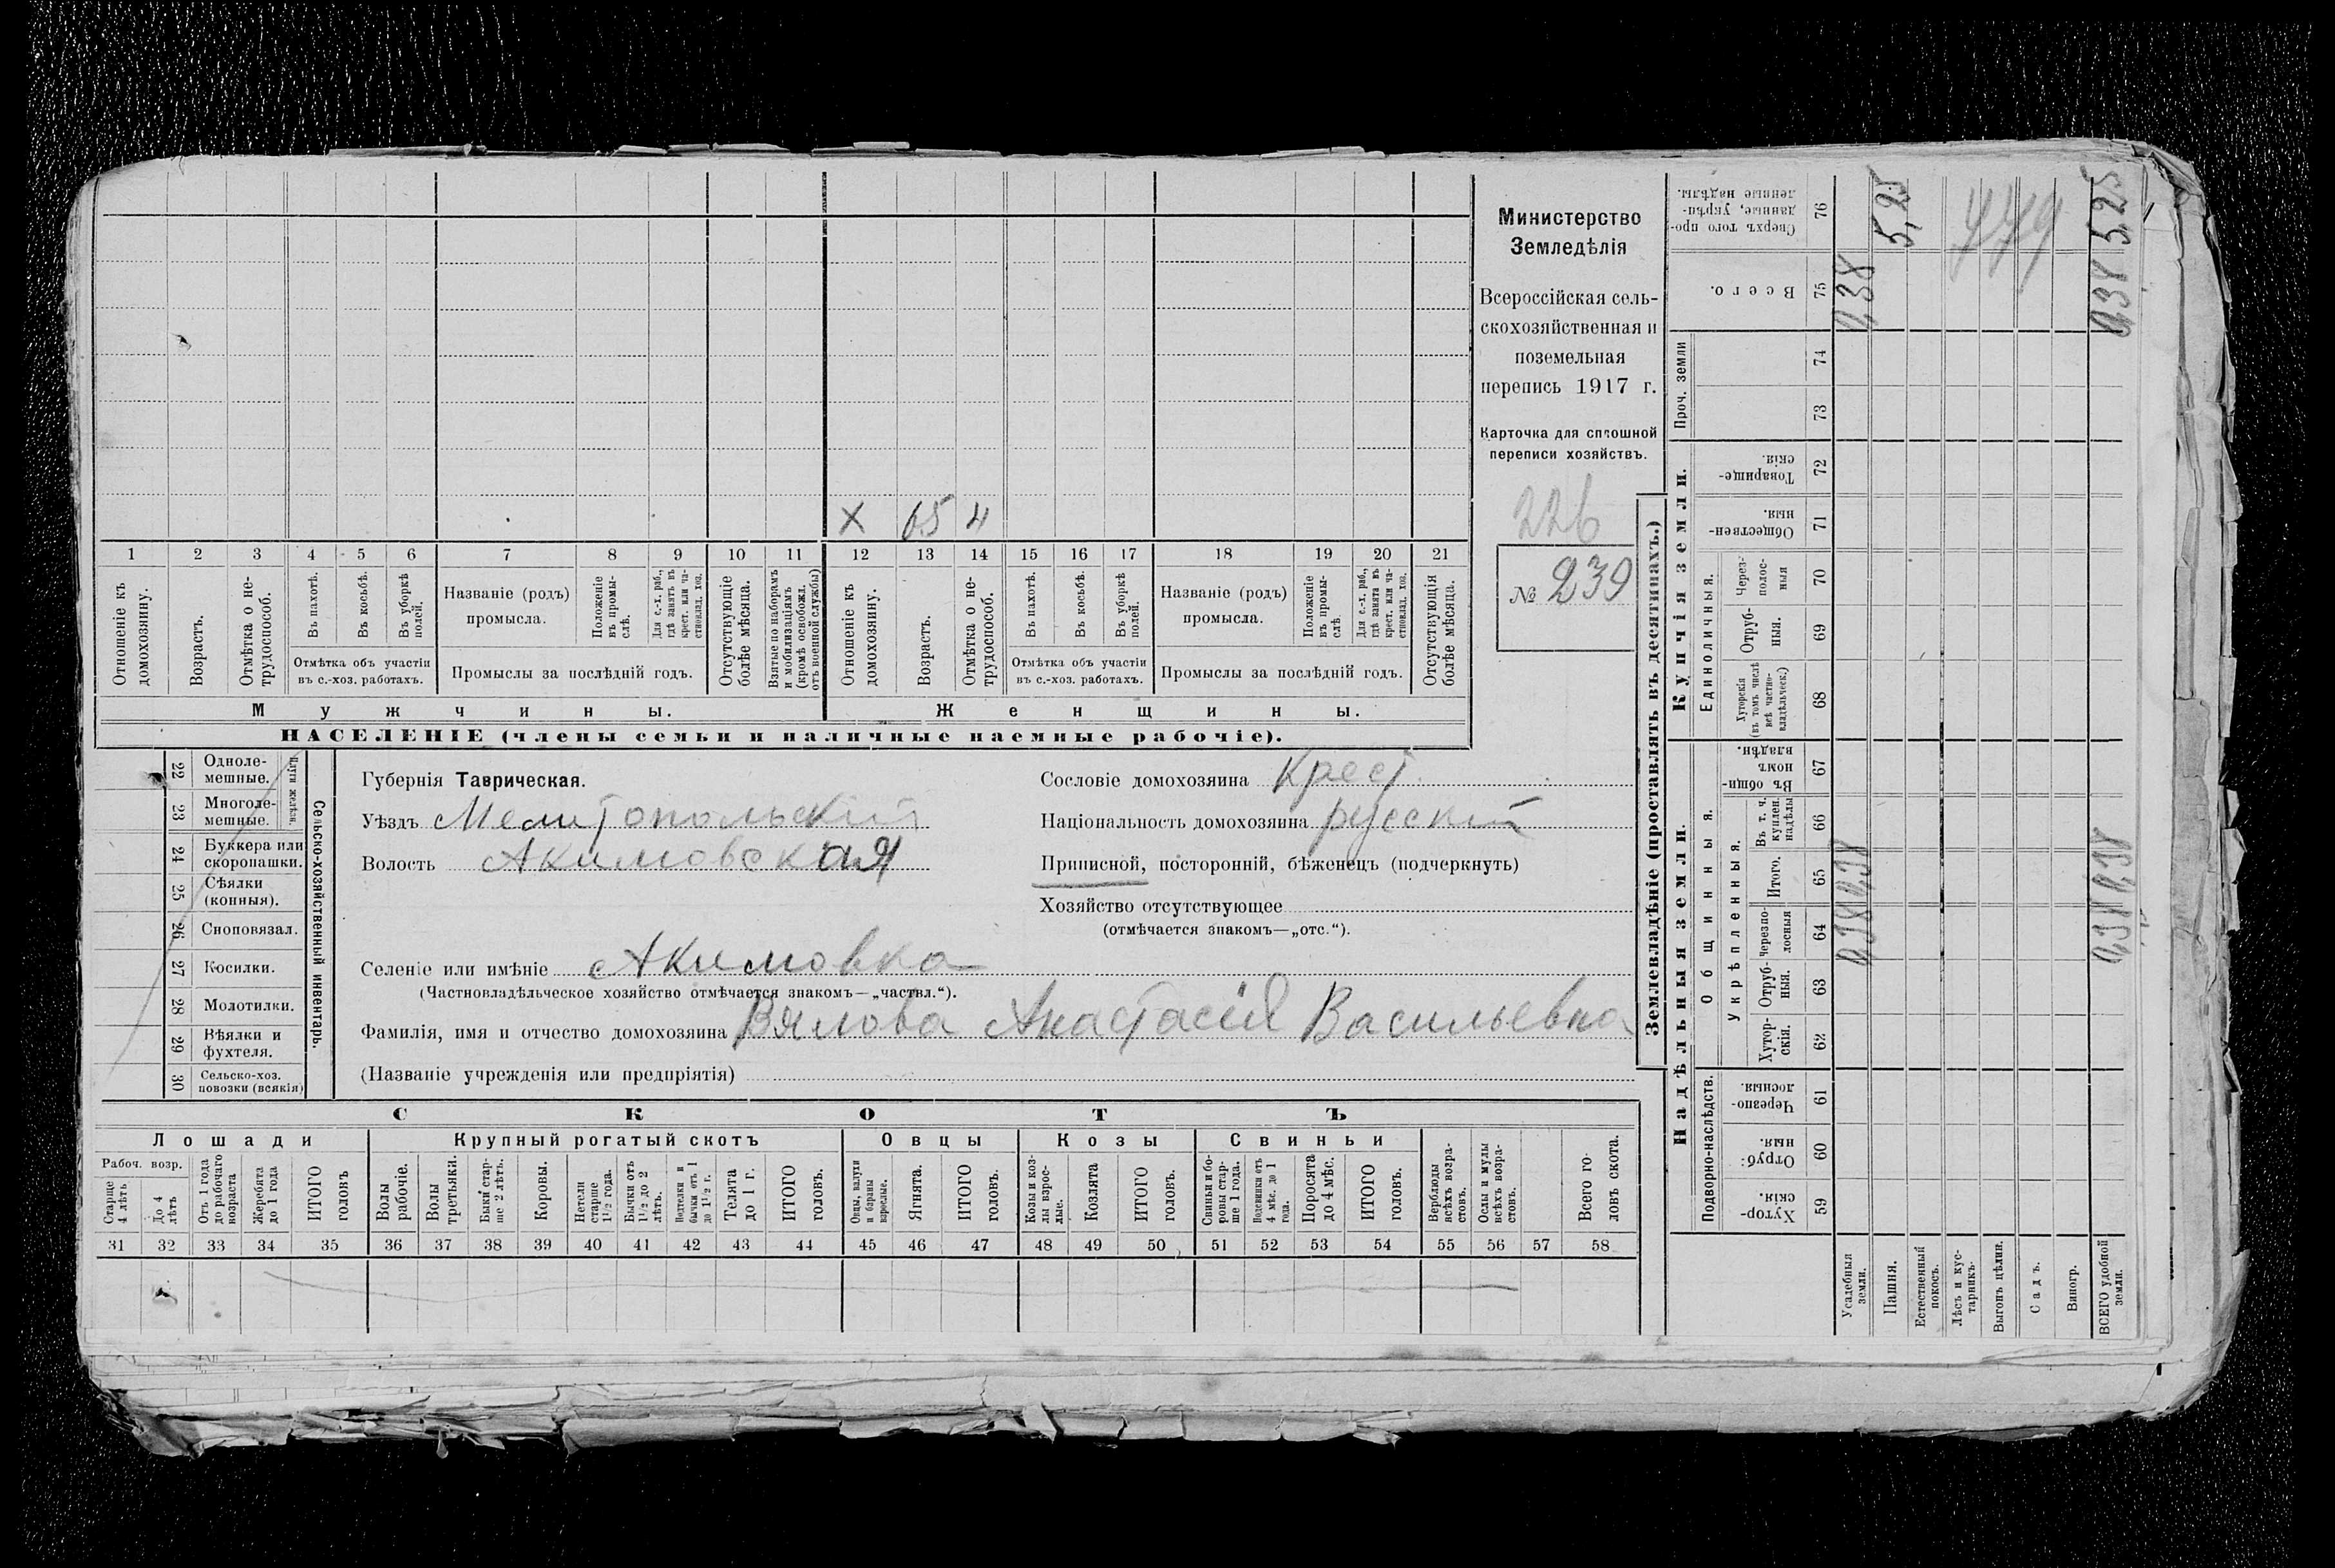 Министерство
Земледѣлія
Всероссійская сель-
скохозяйственная и
поземельная
перепись 1917 г.
Карточка для сплошной
переписи хозяйствъ.
226
№ 239
X 65 4
1 2 3 4 5 6 7 8 9 10 11 12 13 14 15 16 17 18 19 20 21
Отношеніе къ домохозяину.
Возрастъ.
Отмѣтка о не-трудоспособ.
Въ пахотѣ.
Въ косьбѣ.
Въ уборкѣ полей.
Отмѣтка объ участіи
въ с.-хоз. работахъ.
Названіе (родъ)
промысла.
Положеніе въ промы-слѣ.
Для с.-х. раб., гдѣ занятъ въ крест. или ча-стновлад. хоз.
Промыслы за послѣдній годъ.
Отсутствующіе болѣе мѣсяца.
Взятые по наборамъ и мобилизаціямъ (кромѣ освобожд. отъ военной службы)
Отношеніе къ домохозяину.
Возрастъ.
Отмѣтка о не-трудоспособ.
Въ пахотѣ.
Въ косьбѣ.
Въ уборкѣ полей.
Отмѣтка объ участіи
въ с.-хоз. работахъ.
Названіе (родъ)
промысла.
Положеніе въ промы-слѣ.
Для с.-х. раб., гдѣ занята въ крест. или ча-стновлад. хоз.
Промыслы за послѣдній годъ.
Отсутствующія болѣе мѣсяца.
Мужчины.
Женщины.
НАСЕЛЕНІЕ (члены семьи и наличные наемные рабочіе).
22 Одноле-мешные.
23 Многоле-мешные.
Плуги желѣзн.
24 Буккера или скоропашки.
25 Сѣялки (конныя).
26 Сноповязал.
27 Косилки.
28 Молотилки.
29 Вѣялки и фухтеля.
30 Сельско-хоз. повозки (всякія)
Сельско-хозяйственный инвентарь.
Губернія Таврическая.
Уѣздъ Мелитопольскій
Волость Акимовская
Сословіе домохозяина Крест.
Національность домохозяина русскій
Приписной, посторонній, бѣженецъ (подчеркнуть)
Хозяйство отсутствующее
(отмѣчается знакомъ—„отс.“).
Селеніе или имѣніе Акимовка
(Частновладѣльческое хозяйство отмѣчается знакомъ—„частвл.“).
Фамилія, имя и отчество домохозяина Вялова Анастасія Васильевна
(Названіе учрежденія или предпріятія)
СКОТЪ
Лошади
Крупный рогатый скотъ
Овцы
Козы
Свиньи
Рабоч. возр.
Старше 4 лѣтъ
До 4 лѣтъ
Отъ 1 года до рабочаго возраста
Жеребята до 1 года
ИТОГО головъ
Волы рабочіе.
Волы третьяки.
Быки стар-ше 2 лѣтъ.
Коровы.
Нетели старше 1 1/2 года.
Бычки отъ 1 1/2 до 2 лѣтъ.
Подтелки и бычки отъ 1 до 1 1/2 г.
Телята до 1 г.
ИТОГО головъ.
Овцы, валухи и бараны взрослые.
Ягнята.
ИТОГО головъ.
Козы и коз-лы взрос-лые.
Козлята
ИТОГО головъ.
Свиньи и бо-ровы стар-ше 1 года.
Подсвинки отъ 4 мѣс. до 1 года.
Поросята до 4 мѣс.
ИТОГО головъ.
Верблюды всѣхъ возра-стовъ.
Ослы и мулы всѣхъ возра-стовъ.
Всего го-ловъ скота.
31 32 33 34 35 36 37 38 39 40 41 42 43 44 45 46 47 48 49 50 51 52 53 54 55 56 57 58
Землевладѣніе (проставлять въ десятинахъ.)
Надѣльныя земли.
Купчія земли.
Проч. земли
Подворно-наслѣдств.
Общинныя.
Укрѣпленныя.
Единоличныя.
Хутор-скія. 59
Отруб-ныя. 60
Черезпо-лосныя. 61
Хутор-скія. 62
Отруб-ныя. 63
Черезпо-лосныя 64
Итого. 65
Въ т. ч. куплен. надѣлы 66
Въ общин-номъ владѣн. 67
Хуторскія (въ томъ числѣ всѣ частно-владѣльческ.) 68
Отруб-ныя. 69
Через-полос-ныя 70
Обществен-ныя. 71
Товарище-скія. 72
73
74
Всего. 75
Сверхъ того про-данные, укрѣп-ленные надѣлы. 76
Усадебныя земли. 0,38 0,38 0,38
Пашня. 5,25
Естественный покосъ.
Лѣсъ и кус-тарникъ.
Выгонъ цѣлин.
Садъ.
Виногр.
ВСЕГО удобной земли. 0,38 0,38 0,38 5,25
779